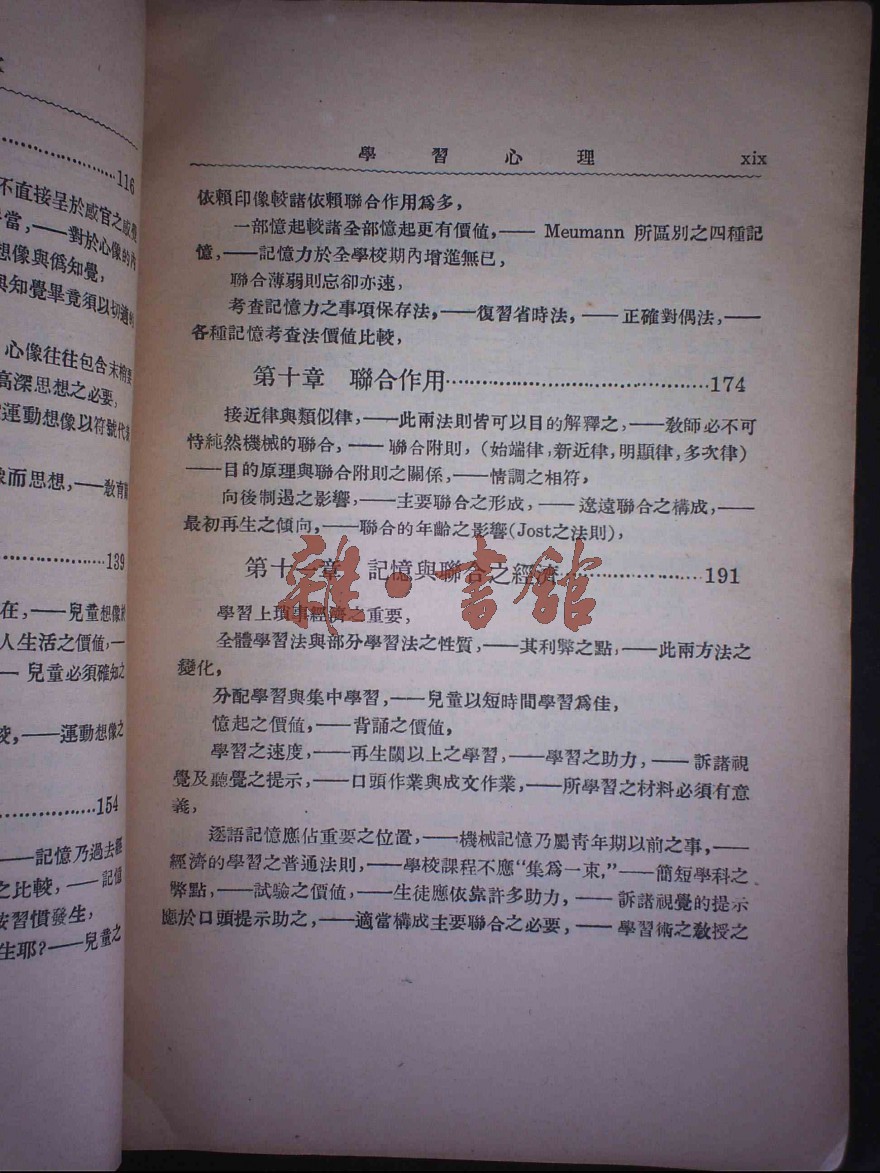 116
不直接呈於感官之感覺
當,——對於心像的內
想像與僞知覺,
與知覺畢竟須以切適的
心像往往包含末梢要
高深思想之必要,
運動想像以符號代
像而思想,——教育
139
在,——兒童想像
人生活之價值,—
— 兒童必須確知之
——運動想像之
154
——記憶乃過去
之比較,——記憶
按習慣發生,
生耶?——兒童之
學習心理 xix
依賴印像較諸依賴聯合作用爲多,
一部憶起較諸全部憶起更有價值,—— Meumann 所區別之四種記
憶,——記憶力於全學校期內增進無已,
聯合薄弱則忘卻亦速,
考查記憶力之事項保存法,——復習省時法,——正確對偶法,——
各種記憶考查法價值比較,
第十章 聯合作用……………………………174
接近律與類似律,——此兩法則皆可以目的解釋之,——敎師必不可
恃純然機械的聯合,——聯合附則,(始端律,新近律,明顯律,多次律)
——目的原理與聯合附則之關係,——情調之相符,
向後制遏之影響,——主要聯合之形成,——遼遠聯合之構成,——
最初再生之傾向,——聯合的年齡之影響(Jost之法則),
第十一章 記憶與聯合之經濟………………191
學習上項事經濟之重要,
全體學習法與部分學習法之性質,——其利弊之點,——此兩方法之
變化,
分配學習與集中學習,——兒童以短時間學習爲佳,
憶起之價值,——背誦之價值,
學習之速度,——再生閾以上之學習,——學習之助力,——訴諸視
覺及聽覺之提示,——口頭作業與成文作業,——所學習之材料必須有意
義,
逐語記憶應佔重要之位置,——機械記憶乃屬靑年期以前之事,——
經濟的學習之普通法則,——學校課程不應“集爲一束,”——簡短學科之
弊點,——試驗之價值,——生徒應依靠許多助力,——訴諸視覺的提示
應於口頭提示助之,——適當構成主要聯合之必要,——學習術之敎授之
雜·書館